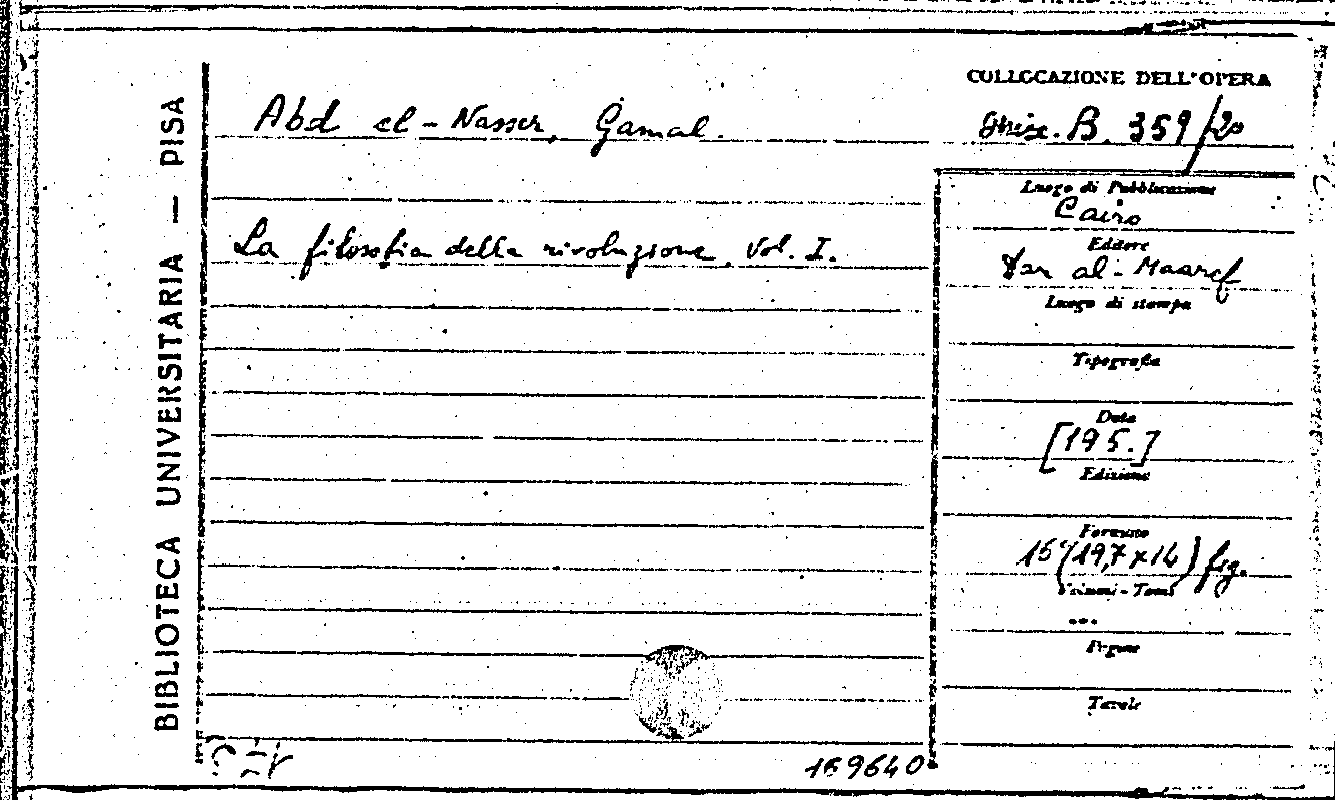 BIBLIOTECA UNIVERSITARIA — PISA
Abd el-Nasser, Gamal.
La filosofia della rivoluzione. Vol. I.
169640
COLLOCAZIONE DELL'OPERA
B. 359/20
Luogo di Pubblicazione
Cairo
Editore
Dar al-Maaref
Luogo di stampa
Tipografia
Data
[195.]
Edizione
Formato
16°(19,7x14) fig.
Volumi - Tomi
...
Pagine
Tavole